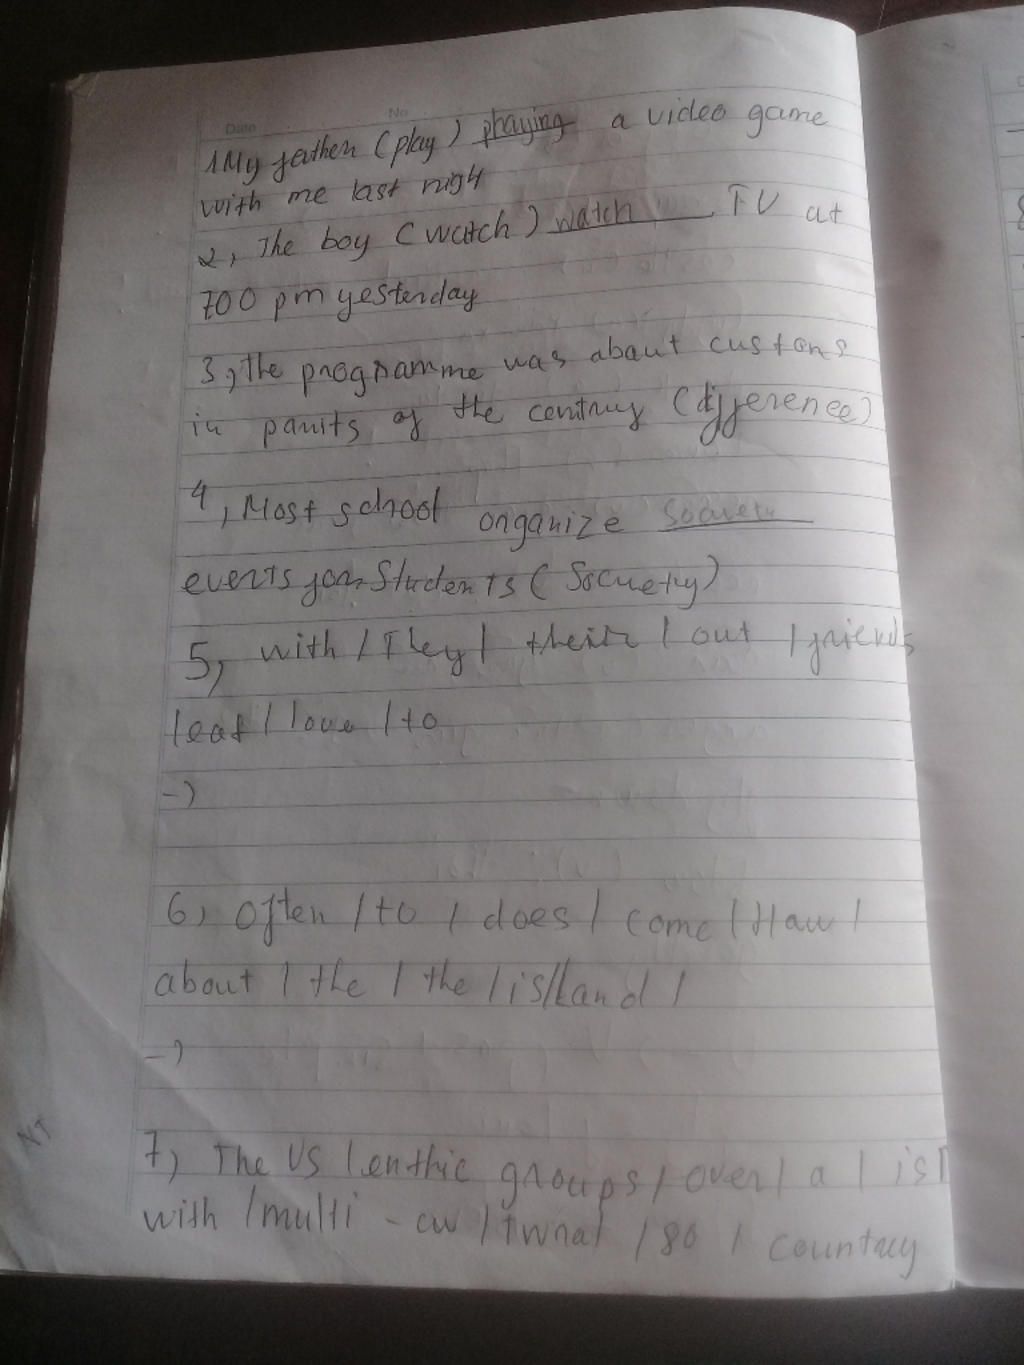 Date No
1 My father (play) playing a video game
with me last nigt
2, The boy (watch) watch TV at
700 pm yesterday
3, the programme was about customs
in parits of the centruy (difference)
4, Most school organize Societu
events for Students (Socuety)
5, with / They / their / out / friends
/ eat / love / to
->
6, Often / to / does / come / Haw /
about / the / the / island /
->
NT
7, The US / enthic groups / over / a / is /
with / multi - cu / / 80 / countruy